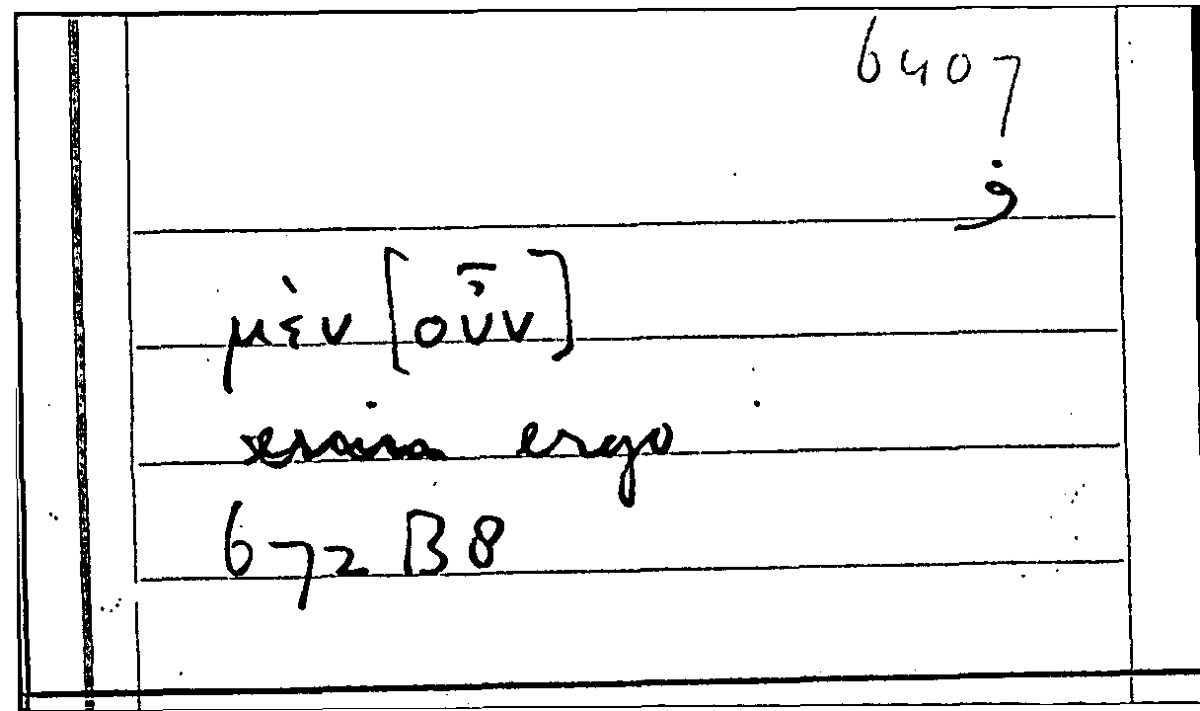 6407
ف
μὲν [οὖν]
ergo
672 B8